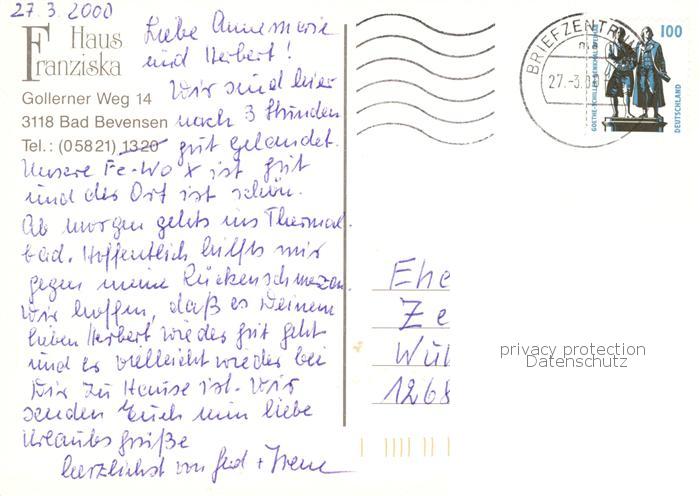 27.3.2000
Haus
Franziska
Gollerner Weg 14
3118 Bad Bevensen
Tel.: (05821) 1320
Liebe Annemarie
und Herbert!
Wir sind hier
nach 3 Stunden
gut gelandet.
Unsere Fe-Wo x ist gut
und der Ort ist schön.
Ab morgen gehts ins Thermal-
bad. Hoffentlich hilfts mir
gegen meine Rückenschmerzen.
Wir hoffen, daß es Deinem
lieben Herbert wieder gut geht
und er vielleicht wieder bei
Dir zu Hause ist. Wir
senden Euch nun liebe
Urlaubsgrüße
herzlichst von Gerd + Irene
BRIEFZENTRUM
27.-3.00
100
DEUTSCHLAND
GOETHE-SCHILLER-DENKMAL
Ehe
Ze
Wul
1268
privacy protection
Datenschutz